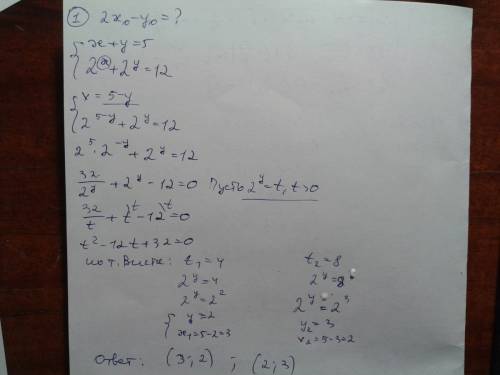 ① 2x₀-y₀=?
{ x+y=5
2ˣ+2ʸ=12
{ x=5-y
2⁵⁻ʸ+2ʸ=12
2⁵·2⁻ʸ+2ʸ=12
32/2ʸ+2ʸ-12=0 Пусть 2ʸ=t, t>0
32/t+t^t-12^t=0
t²-12t+32=0
по т. Виета: t₁=4 t₂=8
2ʸ=4 2ʸ=8
2ʸ=2² 2ʸ=2³
{ y=2 y₂=3
x₁=5-2=3 x₂=5-3=2
Ответ: (3;2) ; (2;3)